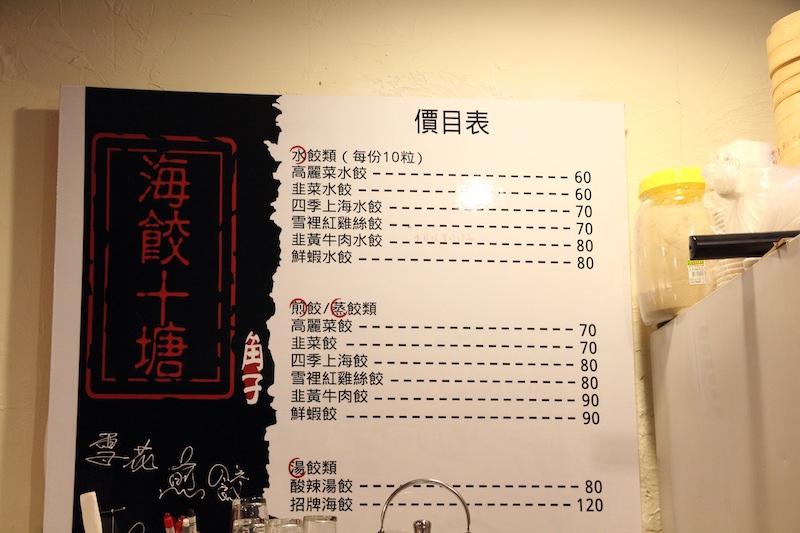 海餃十塘
角子
雪花
煎餃
價目表
水餃類（每份10粒）
高麗菜水餃 60
韭菜水餃 60
四季上海水餃 70
雪裡紅雞絲餃 70
韭黃牛肉水餃 80
鮮蝦水餃 80
煎餃/蒸餃類
高麗菜餃 70
韭菜餃 70
四季上海餃 80
雪裡紅雞絲餃 80
韭黃牛肉餃 90
鮮蝦餃 90
湯餃類
酸辣湯餃 80
招牌海餃 120